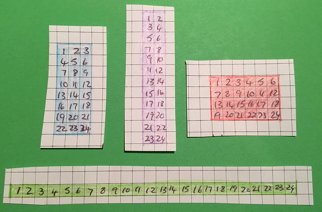 1 2 3
4 5 6
7 8 9
10 11 12
13 14 15
16 17 18
19 20 21
22 23 24
1 2
3 4
5 6
7 8
9 10
11 12
13 14
15 16
17 18
19 20
21 22
23 24
1 2 3 4 5 6
7 8 9 10 11 12
13 14 15 16 17 18
19 20 21 22 23 24
1 2 3 4 5 6 7 8 9 10 11 12 13 14 15 16 17 18 19 20 21 22 23 24